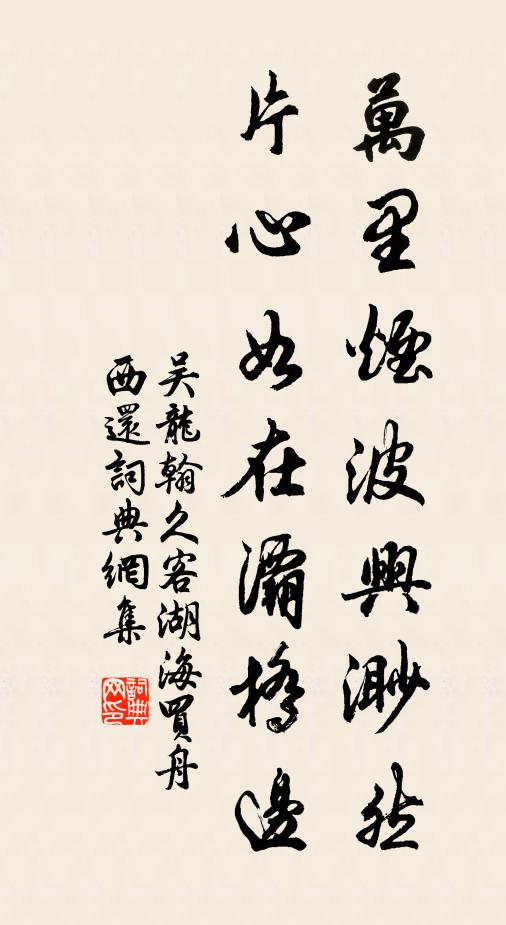 萬里煙波興渺然
片心如在灞橋邊
吳龍翰久客湖海買舟
西還詞典網集
詞典網印